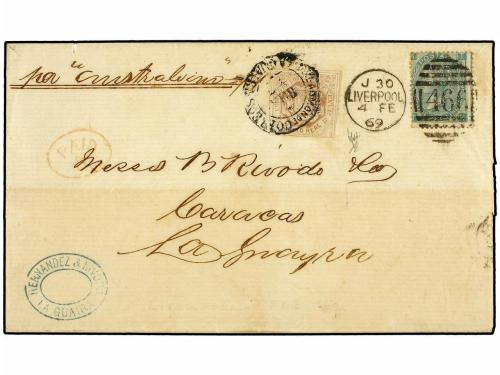 per "Australian"
J 30
LIVERPOOL
4 FE
69
466
PAID
Messrs B Rivodo Co
Caracas
La Guayra
HERNANDEZ &
LA GUAIRA